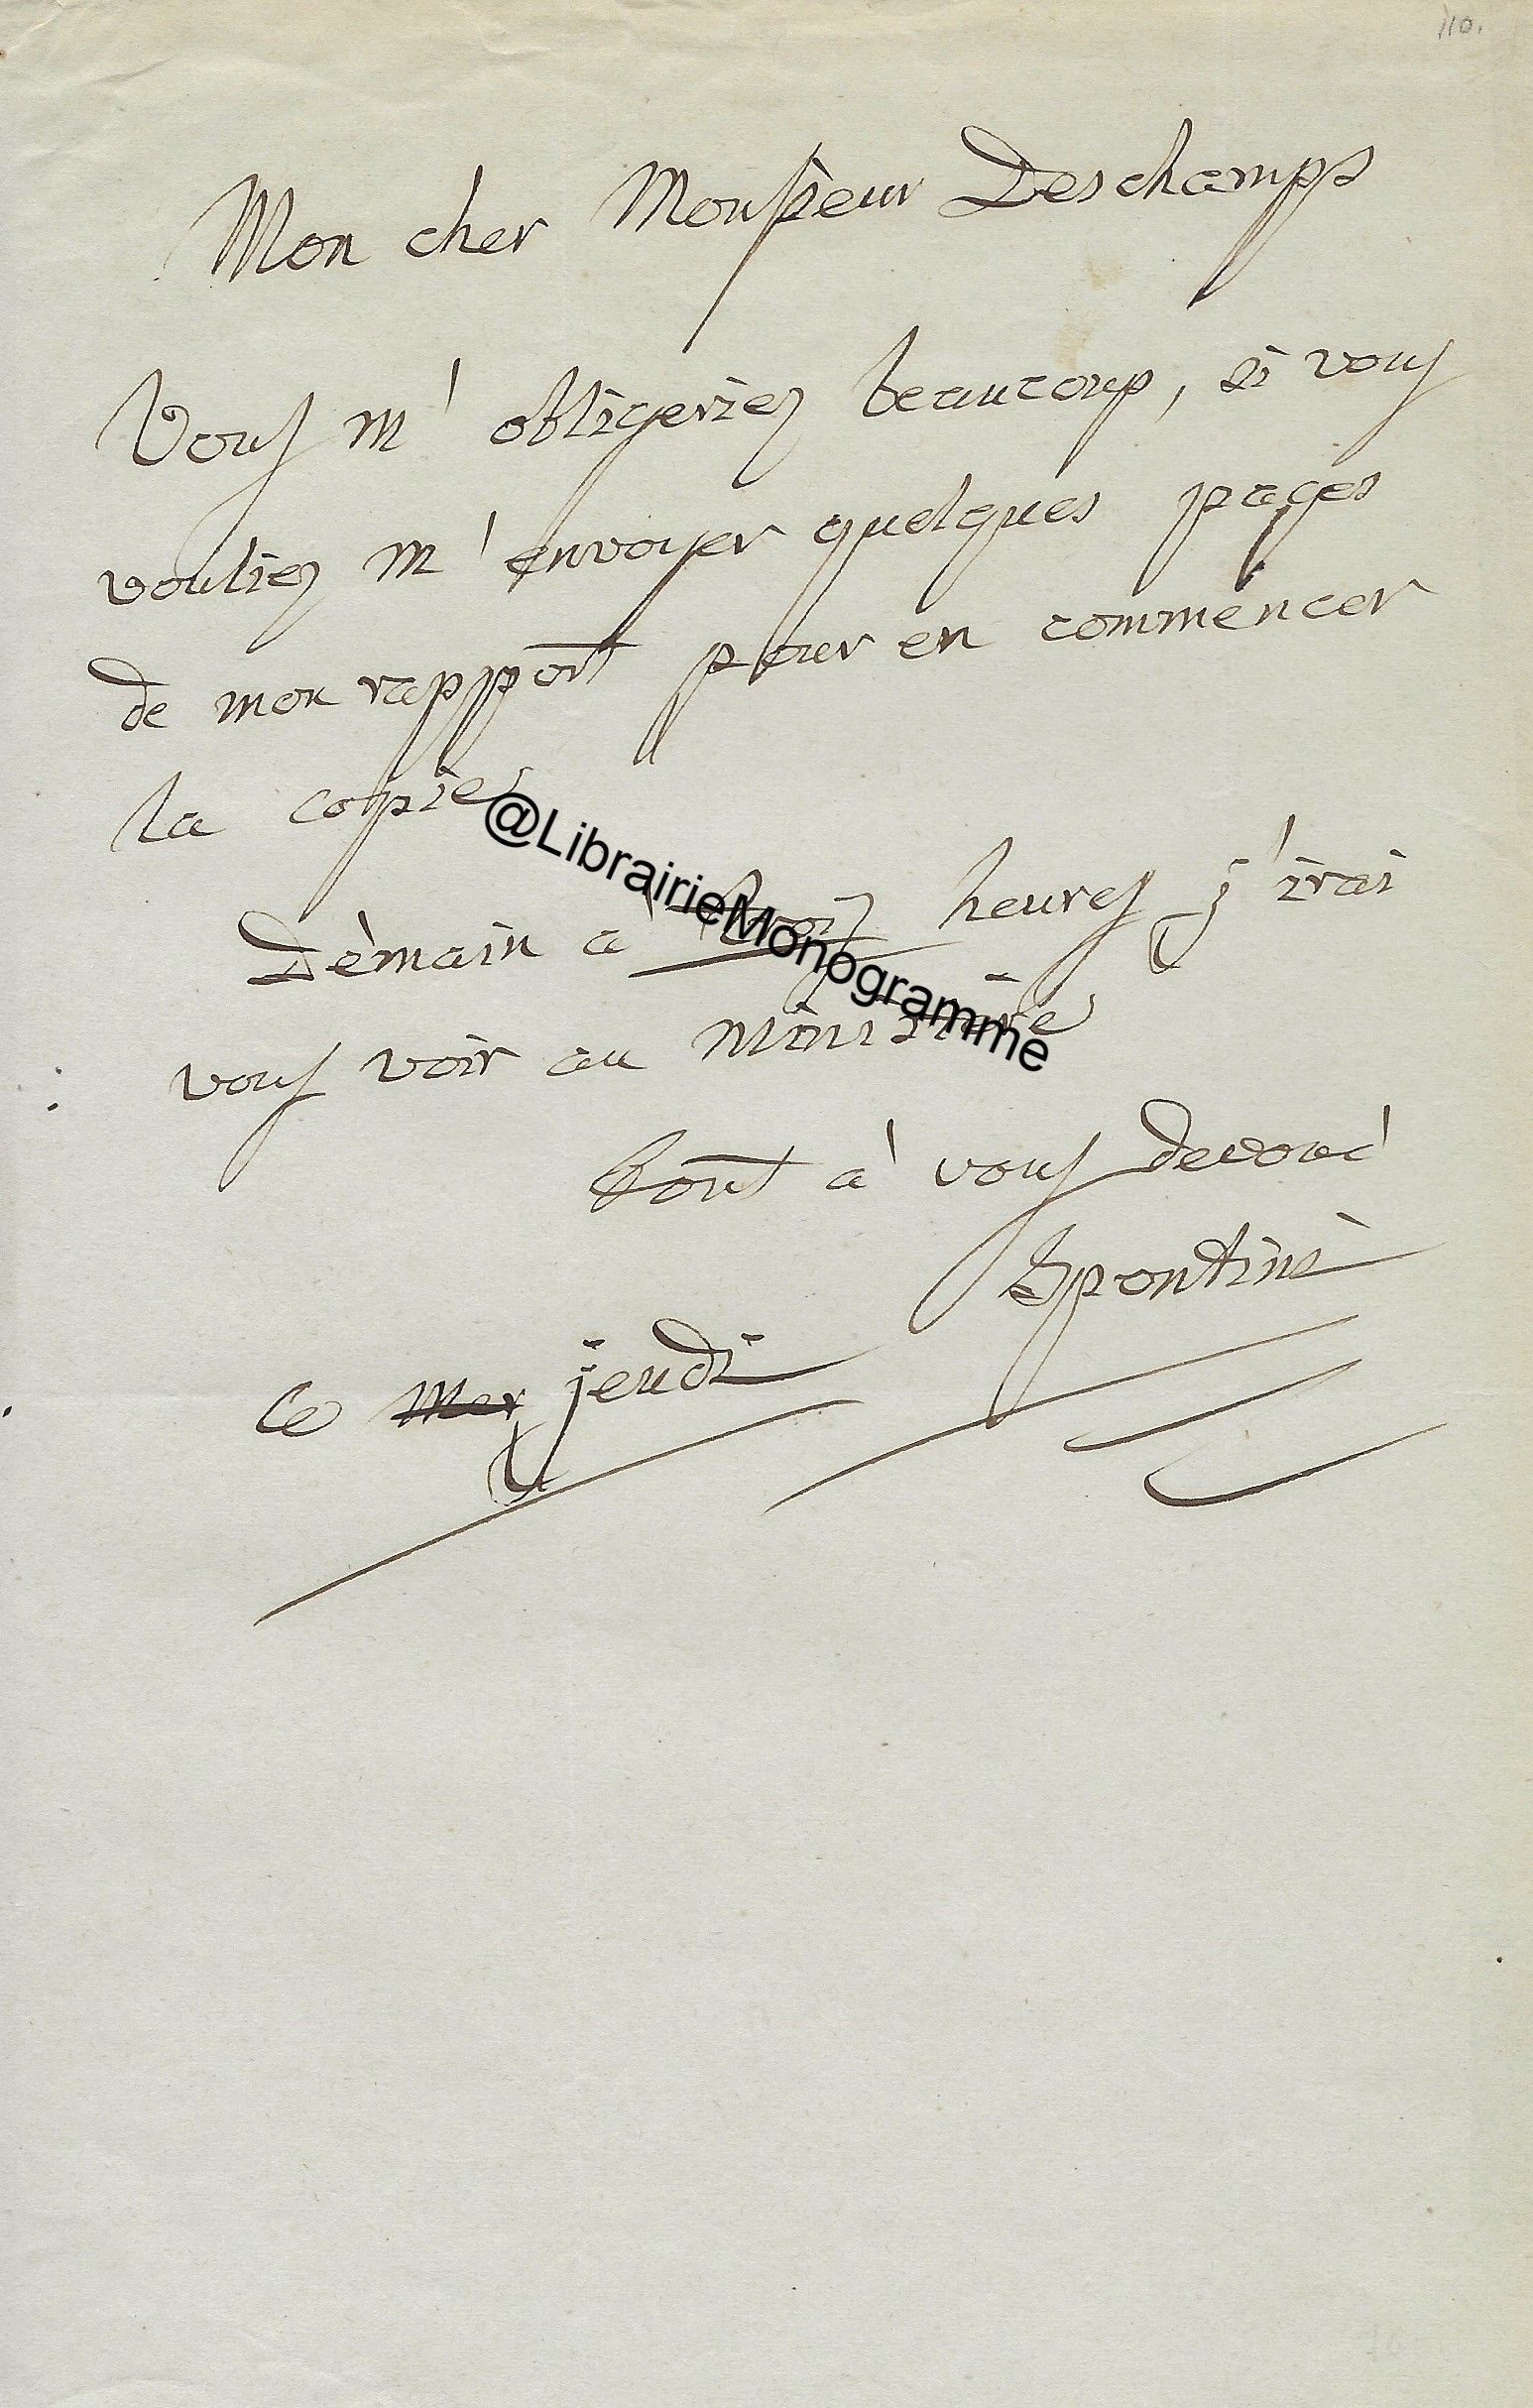 110.
Mon cher Monsieur Deschamps
Vous m'obligeriez beaucoup, si vous
vouliez m'envoyer quelques pages
de mon rapport pour en commencer
la copie
Demain a trois heures j'irai
vous voir au ministère
tout à vous devoué
Spontini
ce mer jeudi
@LibrairieMonogramme